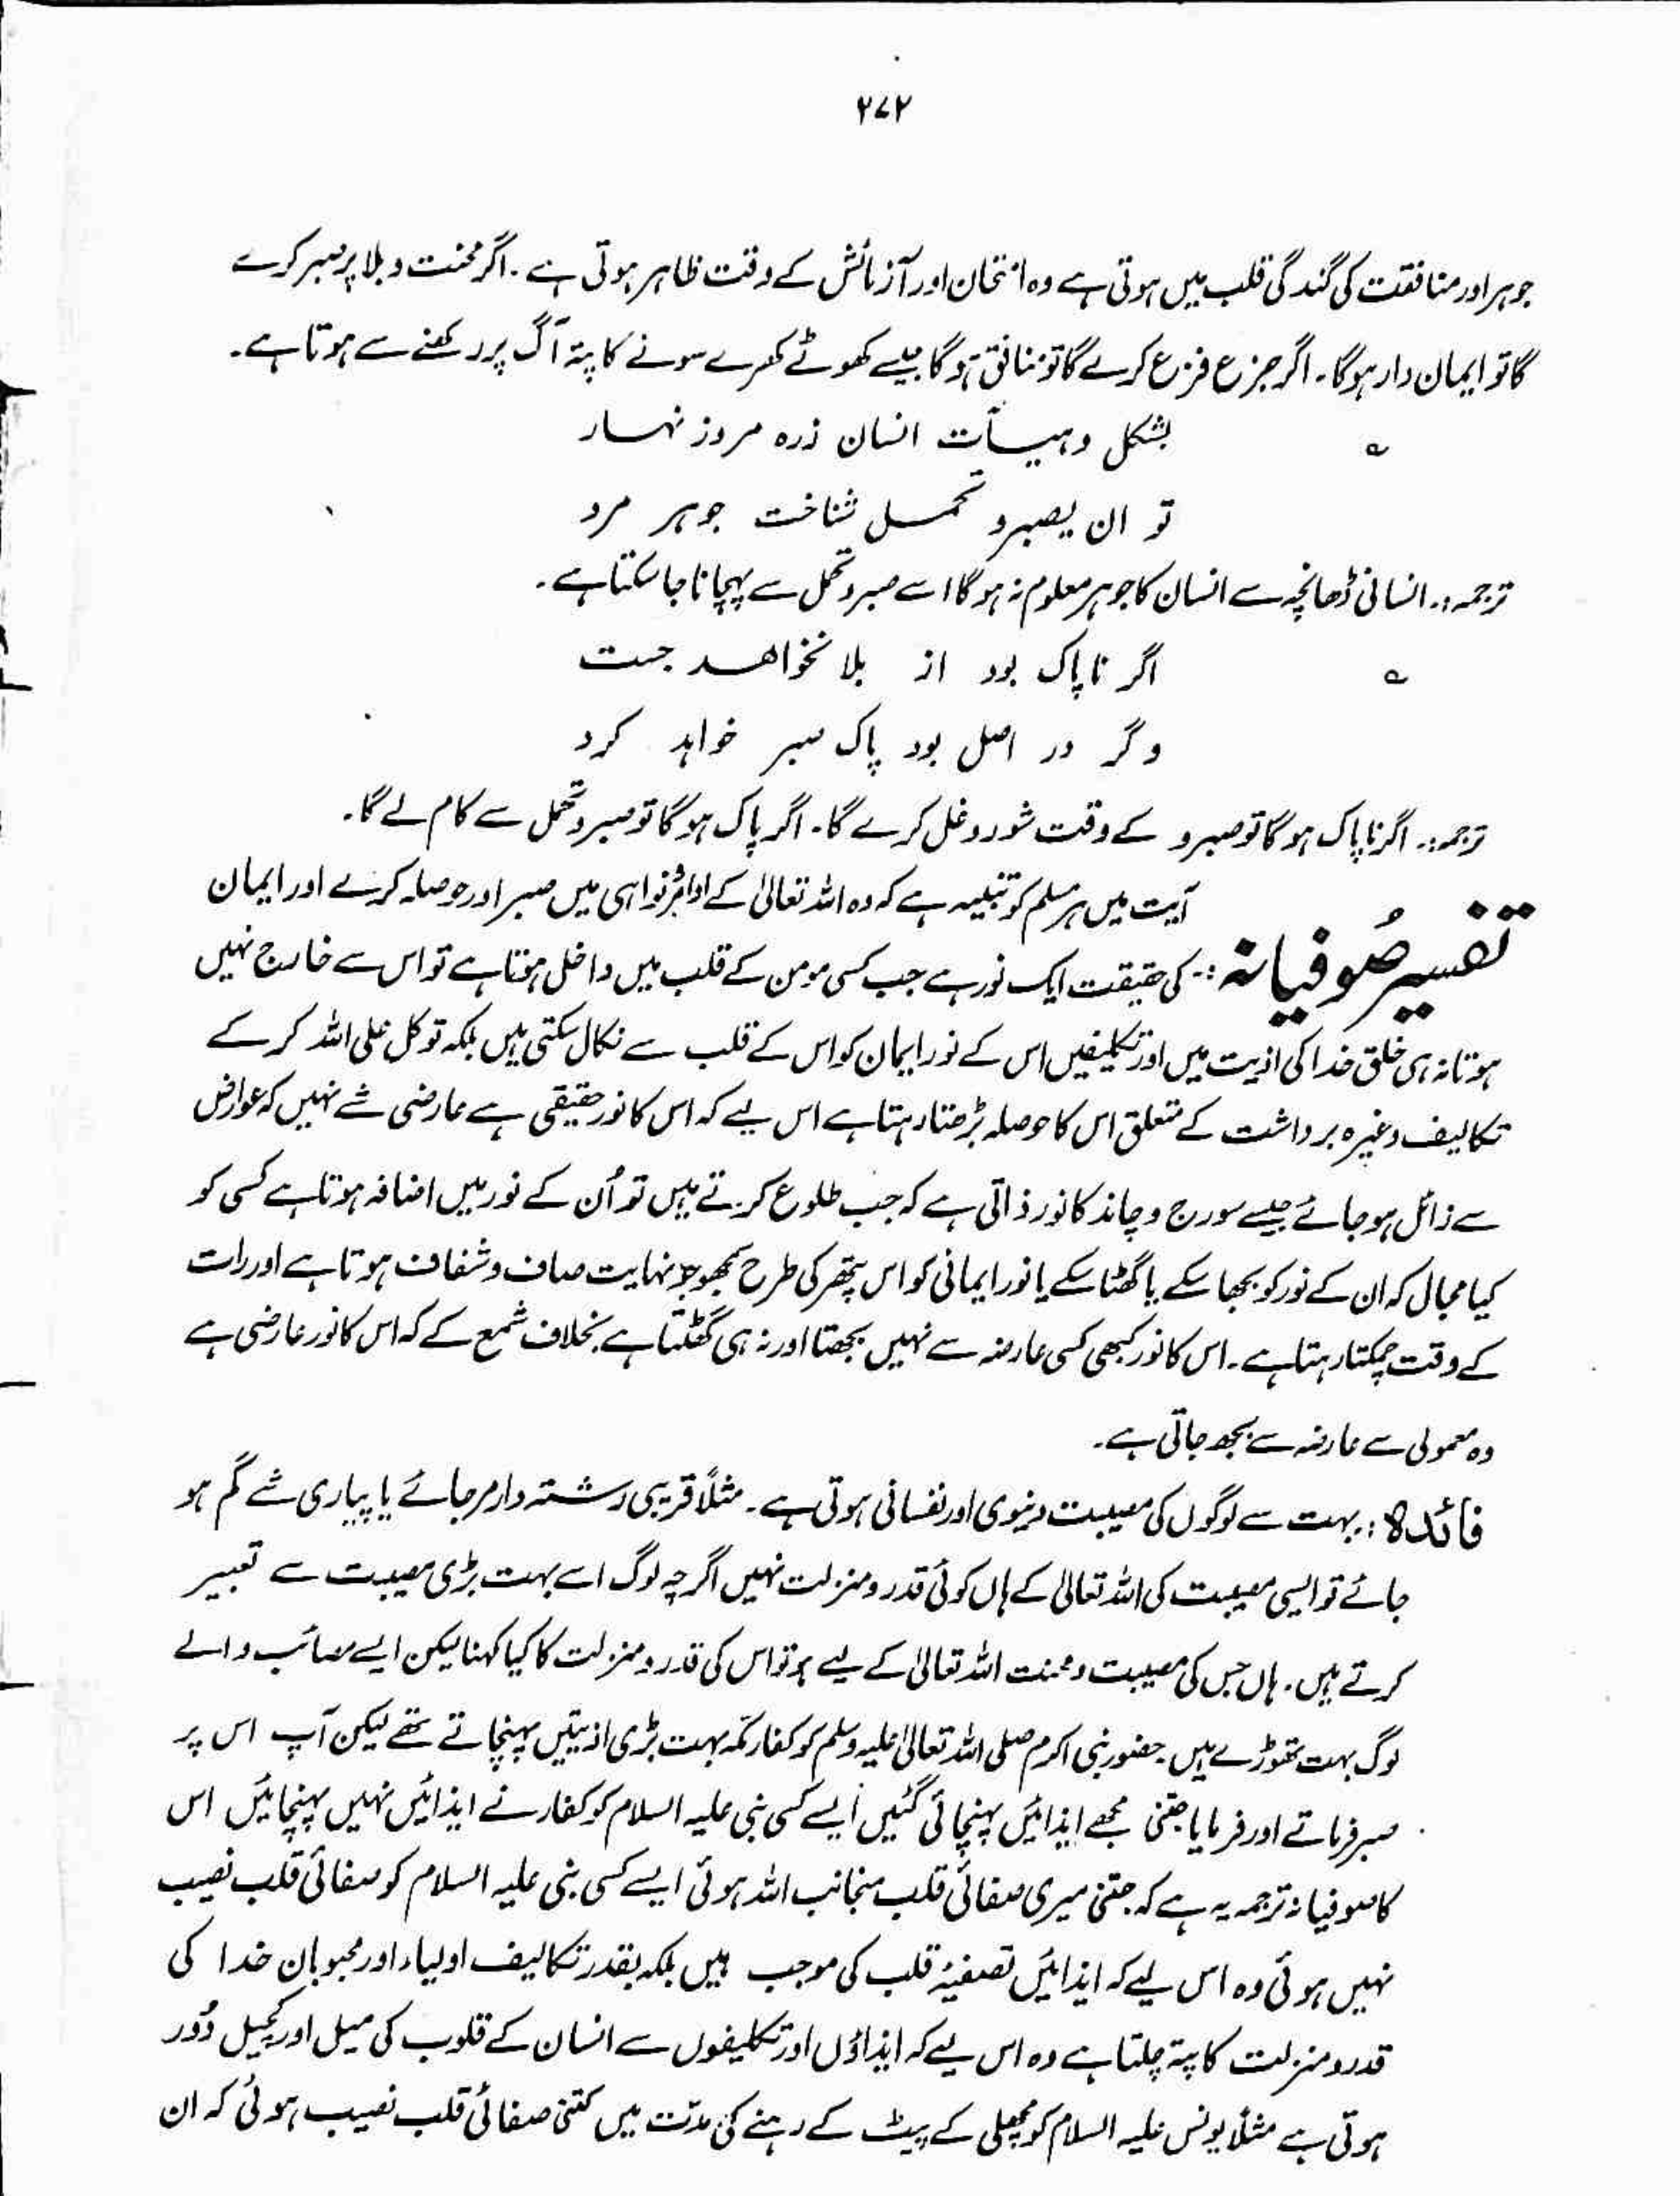 ۲۷۲
جوہر اور منافقت کی گندگی قلب میں ہوتی ہے وہ امتحان اور آزمائش کے وقت ظاہر ہوتی ہے۔ اگر محنت و بلا پر صبر کرے
گا تو ایمان دار ہوگا۔ اگر جزع فزع کرے گا تو منافق ہوگا جیسے کھوٹے کھرے سونے کا پتہ آگ پر رکھنے سے ہوتا ہے۔
؎ بشکل وہیئات انسان زرہ مروز نہار
تو ان یصبر و تحمل شناخت جوہر مرد
ترجمہ:۔ انسانی ڈھانچہ سے انسان کا جوہر معلوم نہ ہوگا اسے صبر و تحمل سے پہچانا جا سکتا ہے۔
؎ اگر ناپاک بود از بلا نخواهد جست
وگر در اصل بود پاک صبر خواہد کرد
ترجمہ:۔ اگر ناپاک ہوگا تو صبر و کے وقت شور و غل کرے گا۔ اگر پاک ہوگا تو صبر و تحمل سے کام لے گا۔
آیت میں ہر مسلم کو تنبیہ ہے کہ وہ اللہ تعالیٰ کے اوامر و نواہی میں صبر اور حوصلہ کرے اور ایمان
تفسیر صُوفیانہ:۔ کی حقیقت ایک نور ہے جب کسی مومن کے قلب میں داخل ہوتا ہے تو اس سے خارج نہیں
ہوتا نہ ہی خلق خدا کی اذیت میں اور تکلیفیں اس کے نور ایمان کو اس کے قلب سے نکال سکتی ہیں بلکہ توکل علی اللہ کر کے
تکالیف وغیرہ برداشت کے متعلق اس کا حوصلہ بڑھتا رہتا ہے اس لیے کہ اس کا نور حقیقی ہے عارضی شے نہیں کہ عوارض
سے زائل ہو جائے جیسے سورج و چاند کا نور ذاتی ہے کہ جب طلوع کرتے ہیں تو اُن کے نور میں اضافہ ہوتا ہے کسی کو
کیا مجال کہ ان کے نور کو بجھا سکے یا گھٹا سکے یا نور ایمانی کو اس پتھر کی طرح سمجھو جو نہایت صاف و شفاف ہوتا ہے اور رات
کے وقت چمکتا رہتا ہے۔ اس کا نور کبھی کسی عارضہ سے نہیں بجھتا اور نہ ہی گھٹتا ہے بخلاف شمع کے کہ اس کا نور عارضی ہے
وہ معمولی سے عارضہ سے بجھ جاتی ہے۔
فائدہ: بہت سے لوگوں کی مصیبت دنیوی اور نفسانی ہوتی ہے۔ مثلاً قریبی رشتہ دار مر جائے یا پیاری شے گم ہو
جائے تو ایسی مصیبت کی اللہ تعالیٰ کے ہاں کوئی قدر و منزلت نہیں اگرچہ لوگ اسے بہت بڑی مصیبت سے تعبیر
کرتے ہیں۔ ہاں جس کی مصیبت و محنت اللہ تعالیٰ کے لیے ہو تو اس کی قدر و منزلت کا کیا کہنا لیکن ایسے مصائب والے
لوگ بہت تھوڑے ہیں۔ حضور نبی اکرم صلی اللہ تعالیٰ علیہ وسلم کو کفار مکہ بہت بڑی اذیتیں پہنچاتے تھے لیکن آپ اس پر
صبر فرماتے اور فرمایا جتنی مجھے ایذائیں پہنچائی گئیں ایسے کسی نبی علیہ السلام کو کفار نے ایذائیں نہیں پہنچائیں اس
کا صوفیانہ ترجمہ یہ ہے کہ جتنی میری صفائی قلب منجانب اللہ ہوئی ایسے کسی نبی علیہ السلام کو صفائی قلب نصیب
نہیں ہوئی وہ اس لیے کہ ایذائیں تصفیۂ قلب کی موجب ہیں بلکہ بقدر تکالیف اولیاء اور محبوبان خدا کی
قدر و منزلت کا پتہ چلتا ہے وہ اس لیے کہ ایذاؤں اور تکلیفوں سے انسان کے قلوب کی میل اور کچیل دُور
ہوتی ہے مثلاً یونس علیہ السلام کو مچھلی کے پیٹ کے رہنے کی مدّت میں کتنی صفائی قلب نصیب ہوئی کہ ان